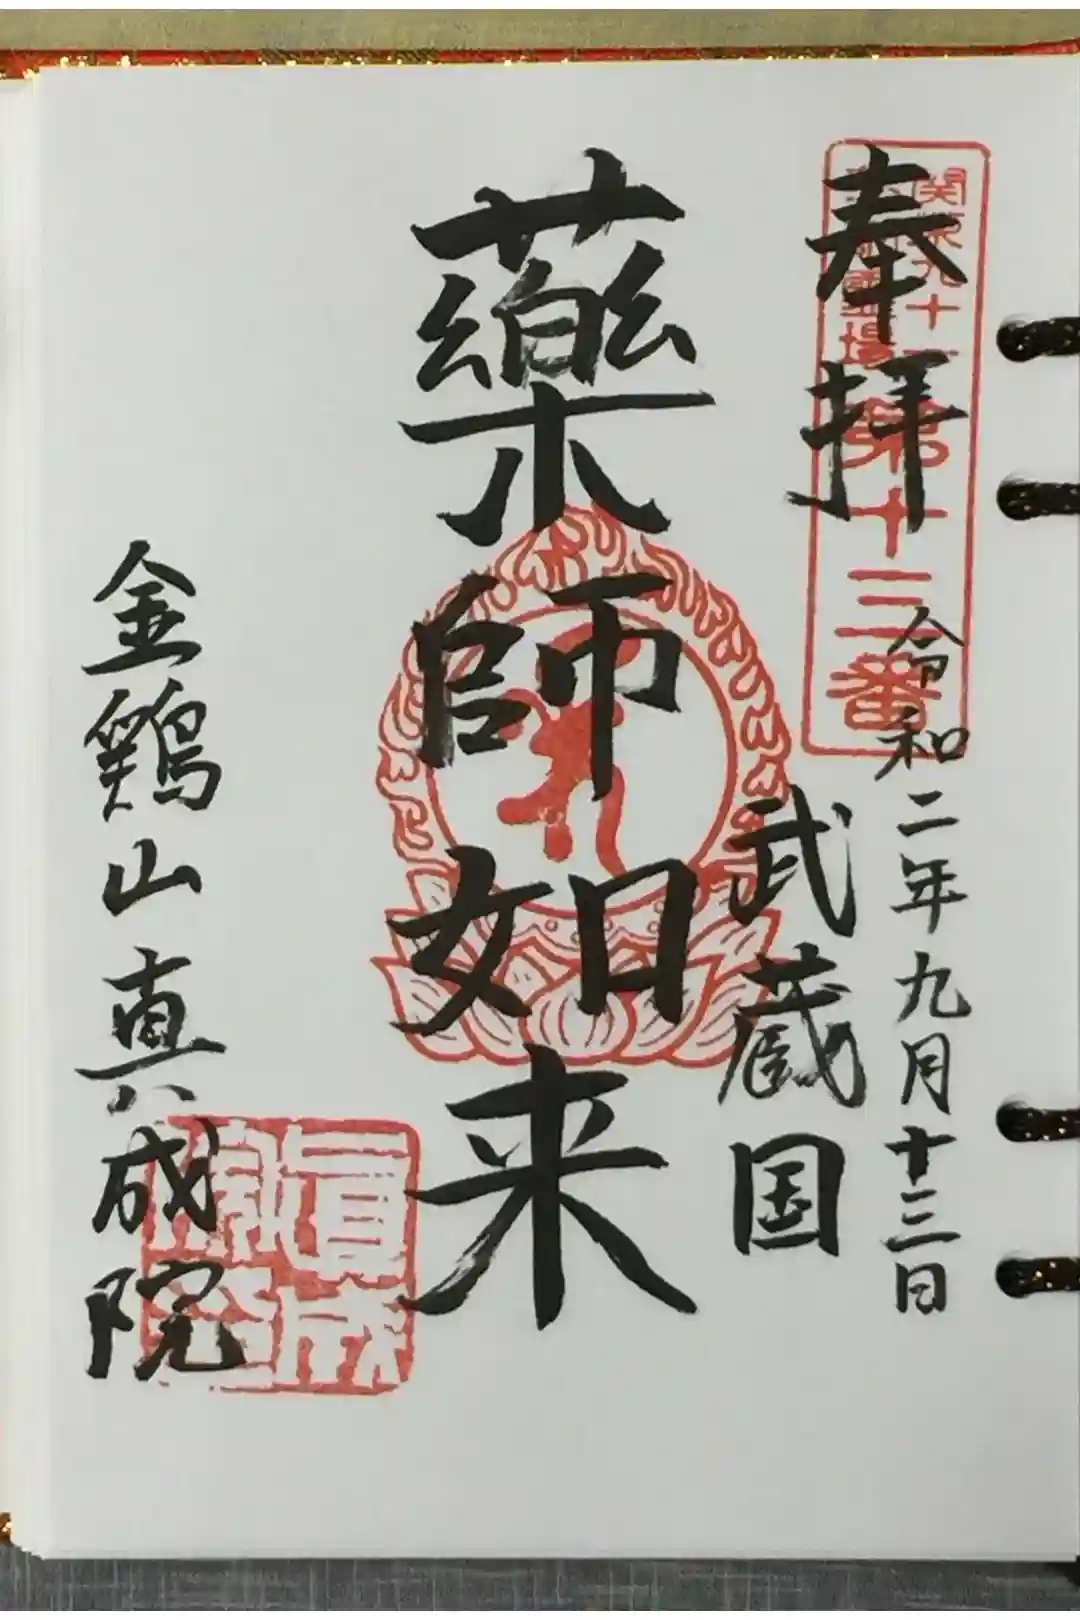 関東九十一
霊場
第十三番
奉拝
令和二年九月十三日
武蔵国
藥師如来
金鶏山真成院